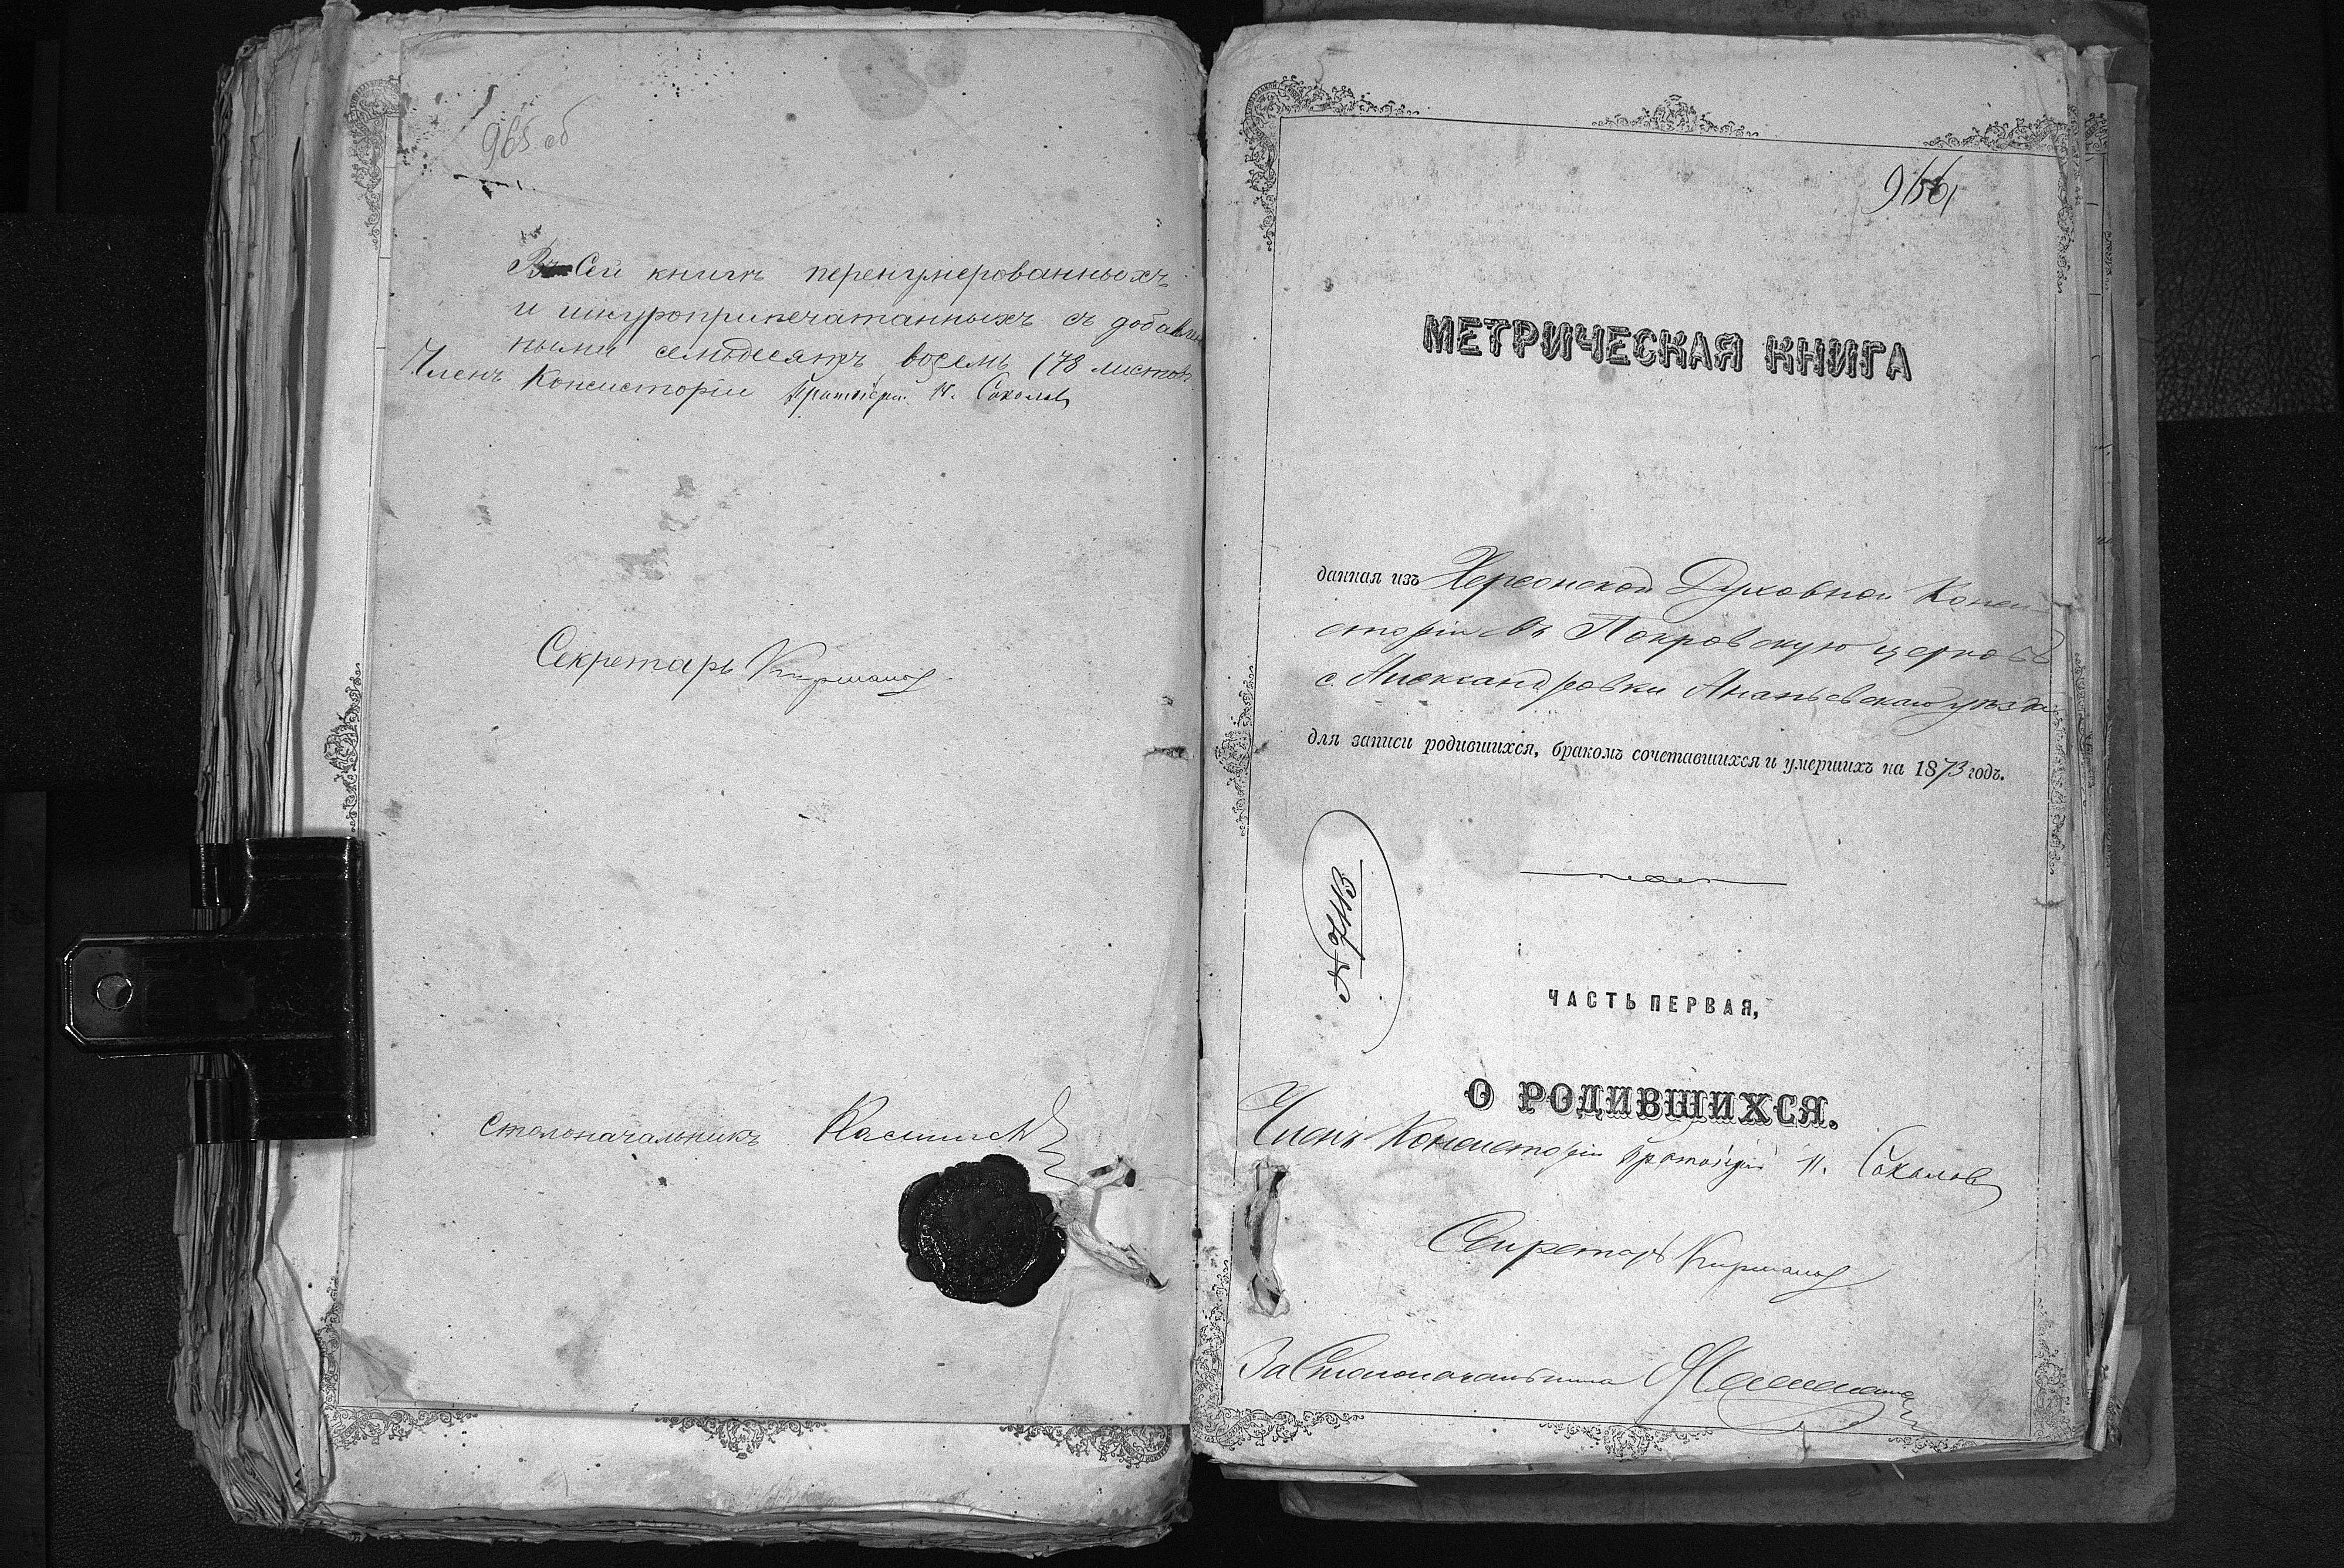 965 об
Въ Сей книгѣ перенумерованныхъ
и шнуроприпечатанныхъ съ добавлен
ными семьдесятъ восемь (78 листовъ
Членъ Консисторіи Протоіерей Соколов
Секретарь
Столоначальникъ
966
МЕТРИЧЕСКАЯ КНИГА
данная изъ Херсонской Духовной Конси
сторіи въ Покровскую церковь
с. Александровки Ананьевскаго уѣзда
для записи родившихся, бракомъ сочетавшихся и умершихъ на 1873 годъ.
№
ЧАСТЬ ПЕРВАЯ,
О РОДИВШИХСЯ.
Членъ Консисторіи Протоіерей Соколов
Секретарь
За Столоначальника